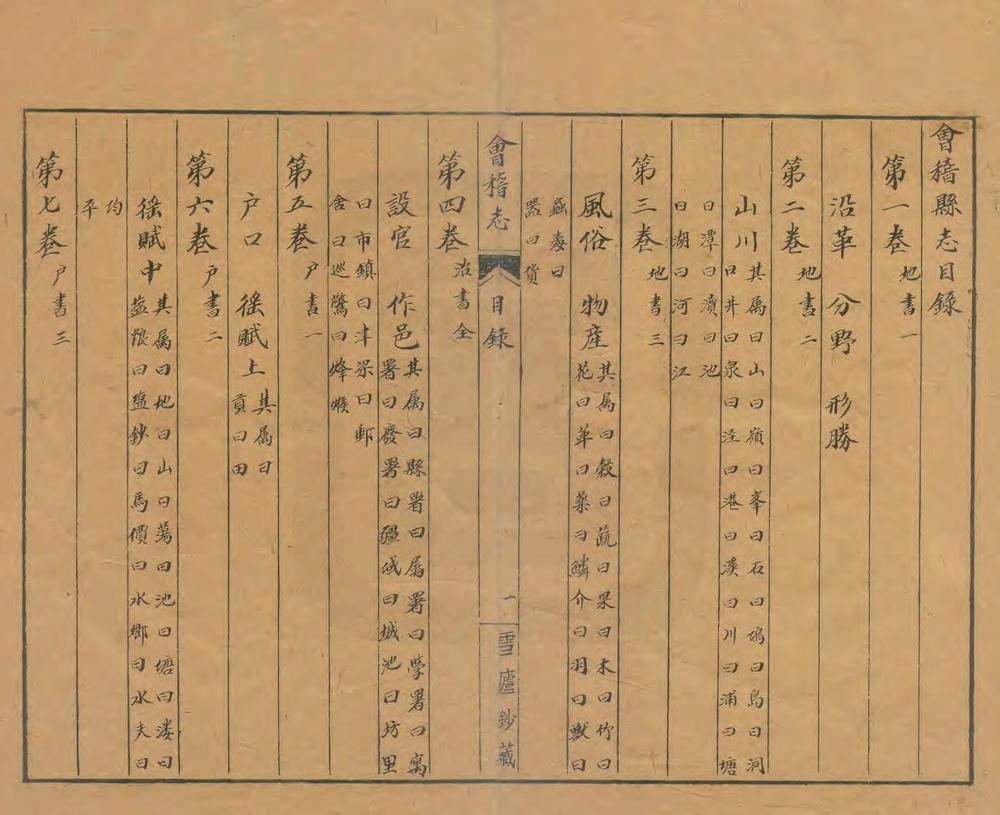 會稽縣志目錄
第一卷 地書一
沿革 分野 形勝
第二卷 地書二
山川 其属曰山曰嶺曰峯曰石曰塢曰島曰洞
曰井曰泉曰涇曰港曰溪曰川曰浦曰塘
曰潭曰瀆曰池
曰湖曰河曰江
第三卷 地書三
風俗 物産 其属曰穀曰蔬曰果曰木曰竹曰
花曰草曰藥曰鱗介曰羽曰獸曰
蟲豸曰
器曰貨
會稽志 目錄 一 雪廬鈔藏
第四卷 治書全
設官 作邑 其属曰縣署曰属署曰學署曰寓
署曰廢署曰疆域曰城池曰坊里
曰市鎮曰津梁曰郵
舍曰巡警曰烽堠
第五卷 户書一
户口 徭賦上 其属曰
貢曰田
第六卷 户書二
徭賦中 其属曰地曰山曰蕩曰池曰塘曰漊曰
盐粮曰盐鈔曰馬價曰水鄉曰水夫曰
均
平
第七卷 户書三